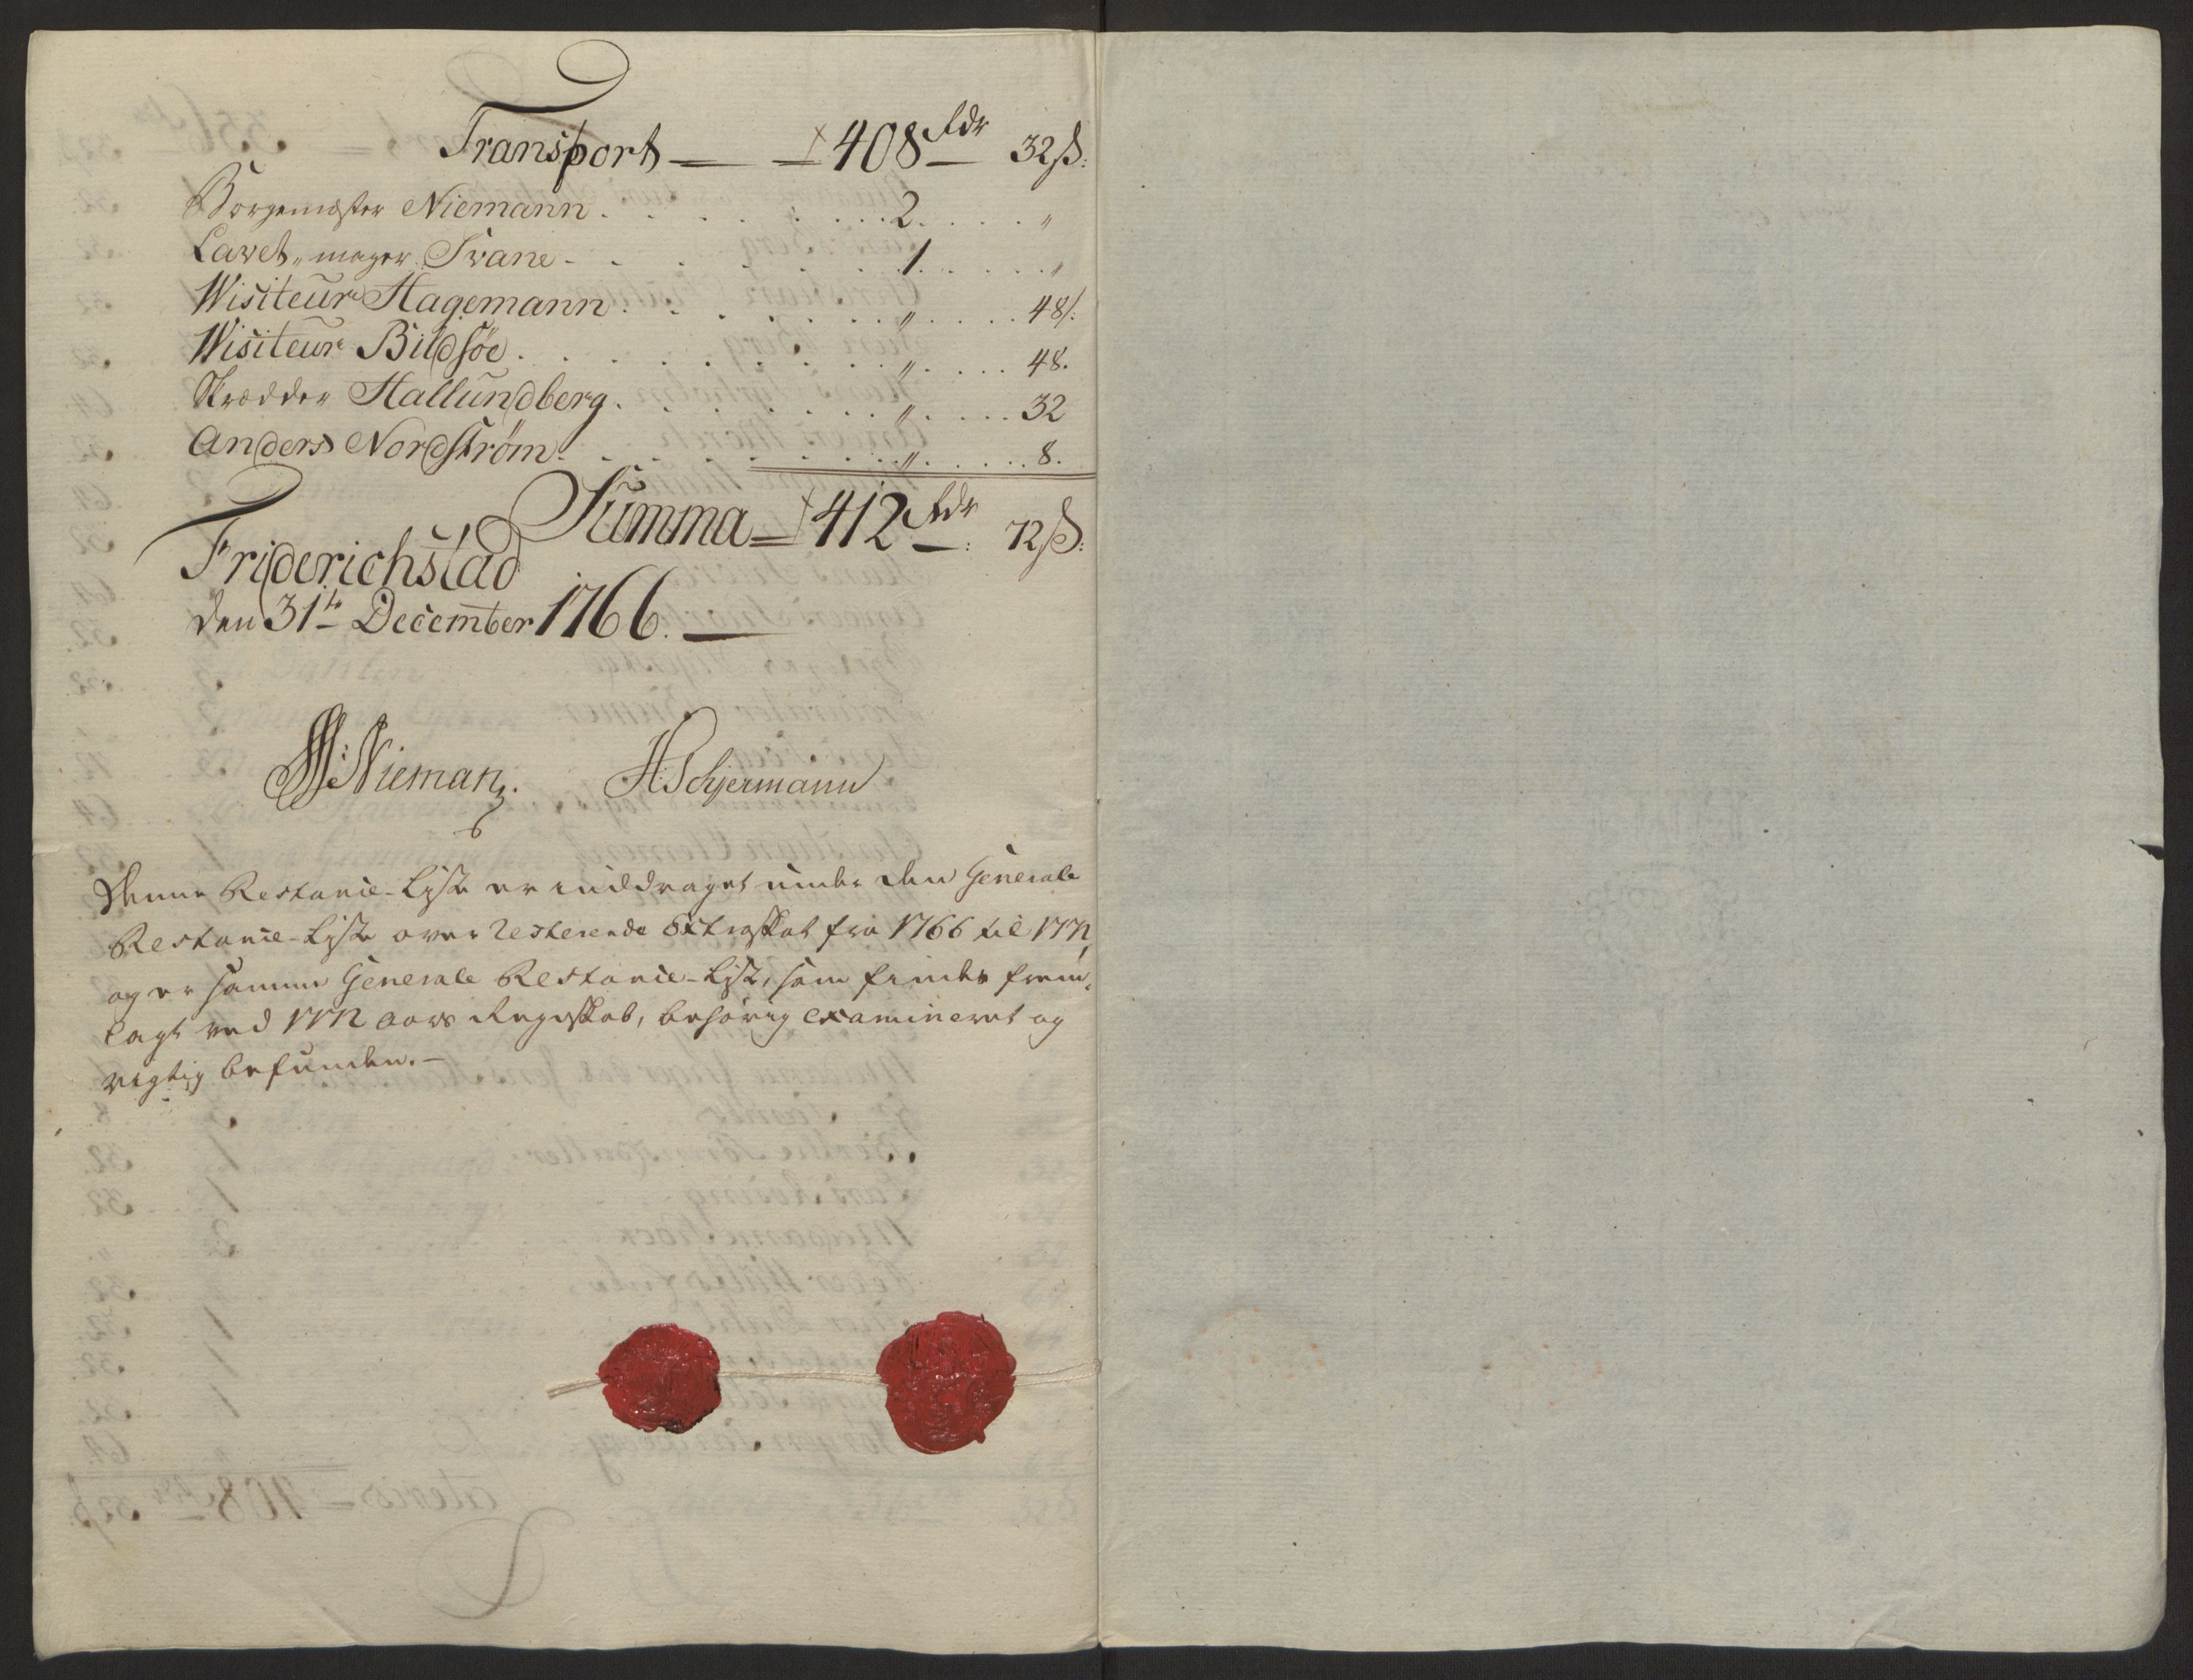 Transport — 408 Rdr 32 ß:
Borgemester Niemann . . . 2 . . . "
Lavet-mager Svane - . . . 1 . . . "
Wisiteur Hagemann . . . " . . . 48 ß:
Wisiteur Bildsøe . . . " . . . 48.
Skrædder Hallundberg . . . " . . . 32
Anders Nordstrøm . . . " . . . 8.
Summa 412 Rdr: 72 ß:
Friderichstad
den 31te December 1766. —
Nieman. H Schjermann
Denne Restance-Liste er inddraget under den Generale
Restance-Liste over resterende Extraskat fra 1766 til 1772,
og er samme Generale Restance-Liste, som findes frem-
lagt ved 1772 aars Regnskab, behørig examineret og
rigtig befunden. —